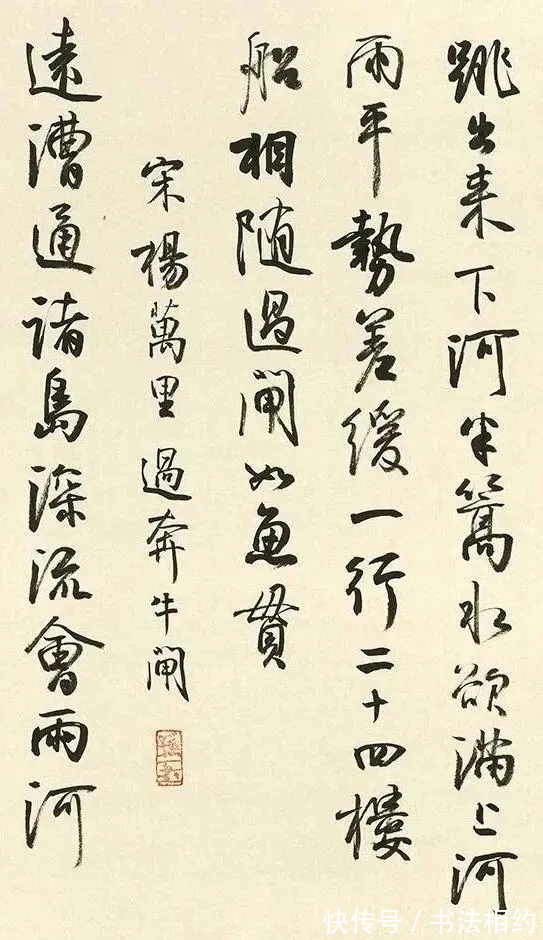 跳出来下河半篙水欲满上河
兩平勢差缓一行二十四樓
船相随過閘如魚貫
宋楊萬里過奔牛閘
遠漕通諸島深流會兩河
快传号/书法相约